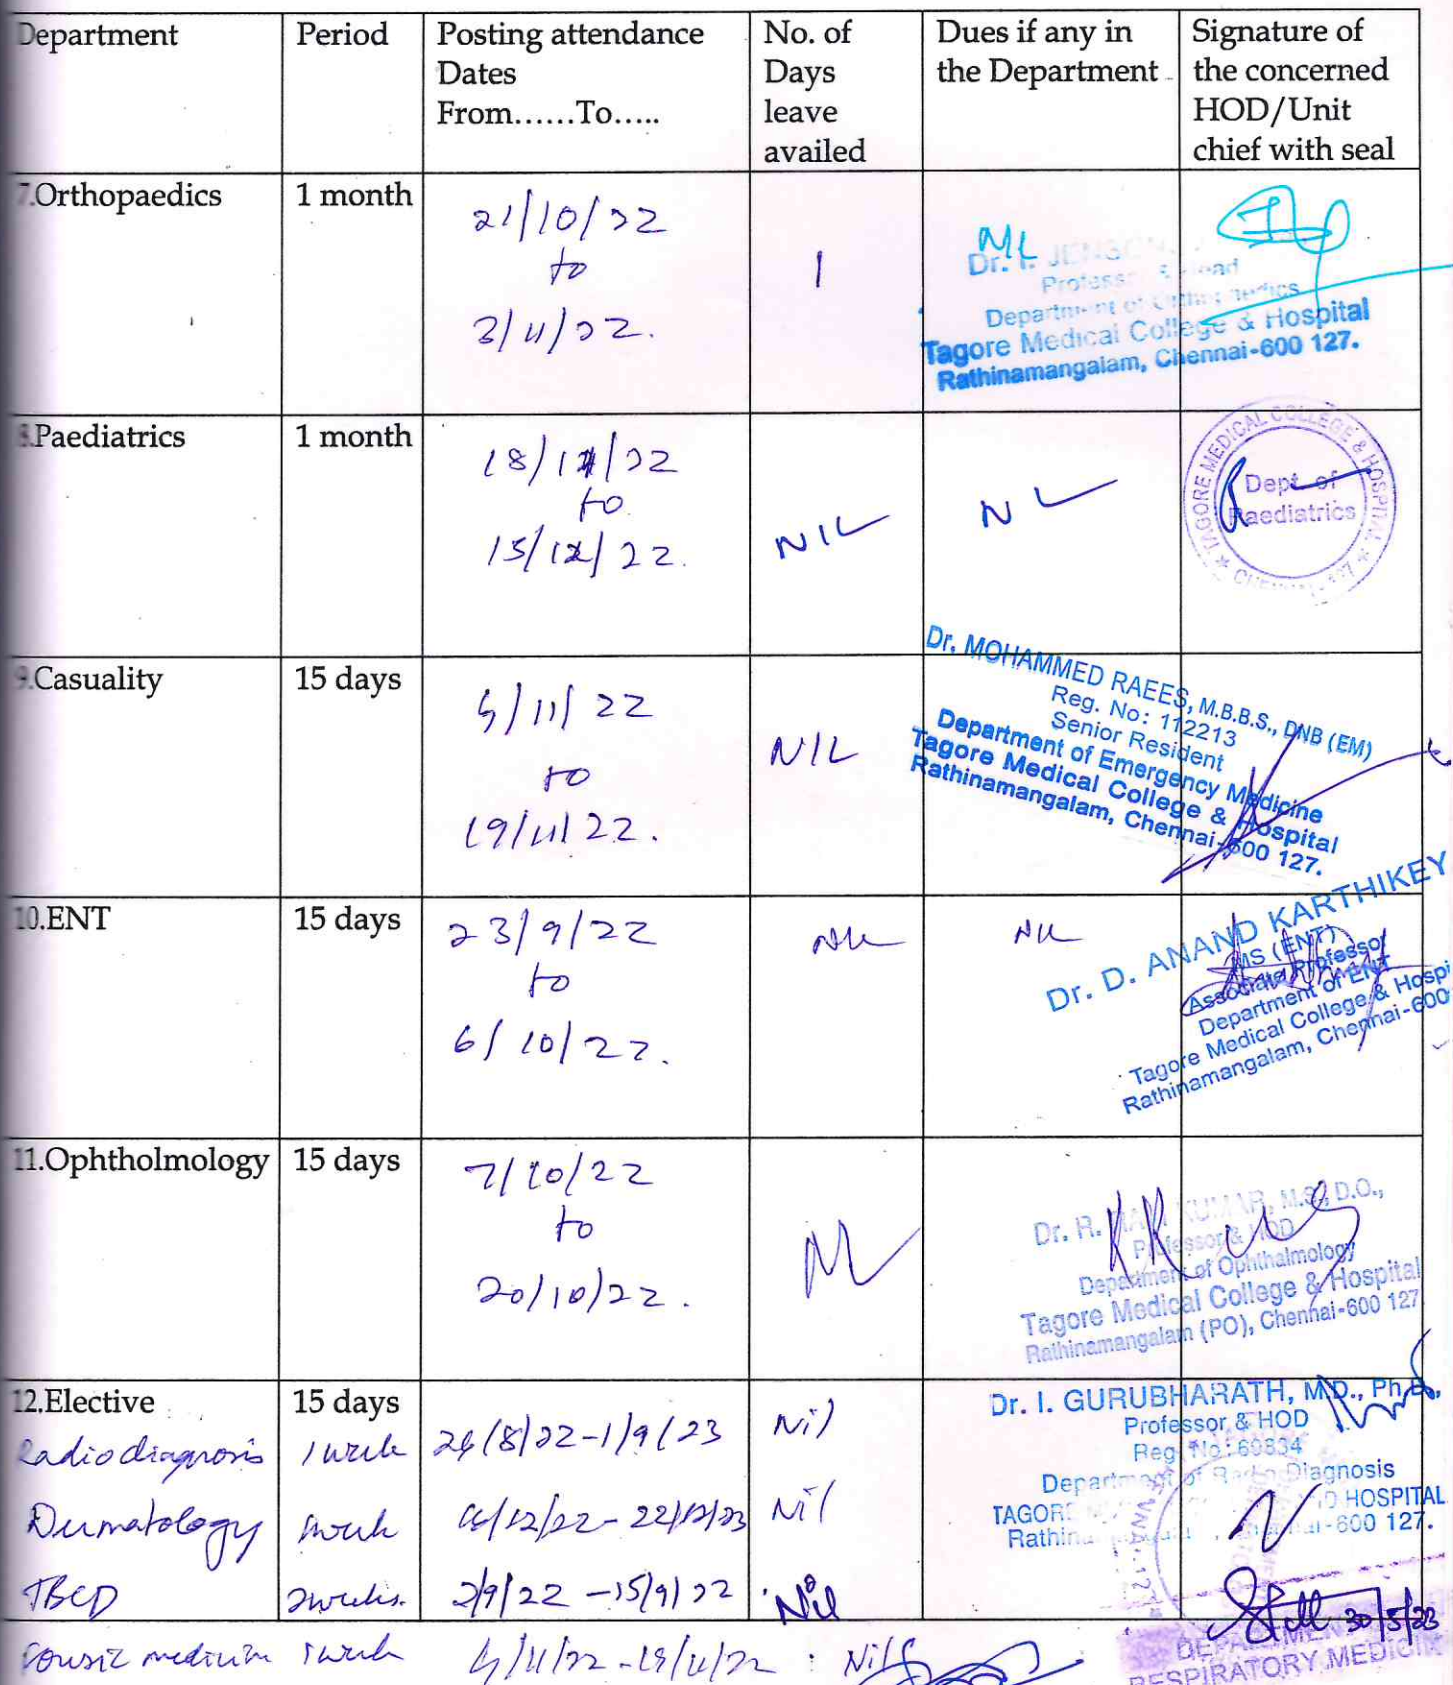 Department Period Posting attendance Dates From......To..... No. of Days leave availed Dues if any in the Department Signature of the concerned HOD/Unit chief with seal
7.Orthopaedics 1 month 21/10/22
to
3/11/22.
1
Nil
Dr.
Professor & Head
Department of Orthopaedics
Tagore Medical College & Hospital
Rathinamangalam, Chennai-600 127.
8.Paediatrics 1 month 18/11/22
to
15/12/22.
NIL
NIL
TAGORE MEDICAL COLLEGE & HOSPITAL
Dept. of
Paediatrics
CHENNAI-127
9.Casuality 15 days 5/11/22
to
19/11/22.
NIL
Dr. MOHAMMED RAEES, M.B.B.S., DNB (EM)
Reg. No: 112213
Senior Resident
Department of Emergency Medicine
Tagore Medical College & Hospital
Rathinamangalam, Chennai-600 127.
10.ENT 15 days 23/9/22
to
6/10/22.
Nil
Nil
Dr. D. ANAND KARTHIKEY
MS (ENT)
Associate Professor
Department of ENT
Tagore Medical College & Hospi
Rathinamangalam, Chennai-600
11.Ophtholmology 15 days 7/10/22
to
20/10/22.
Nil
Dr. R. KUMAR, M.S., D.O.,
Professor & HOD
Department of Ophthalmology
Tagore Medical College & Hospital
Rathinamangalam (PO), Chennai-600 127
12.Elective 15 days
Radiodiagnosis 1 week 26/8/22-1/9/23 Nil
Dermatology 1 week 16/12/22-22/12/23 Nil
TBCD 2 weeks. 2/9/22-15/9/22 Nil
medicine 1 week /11/22-19/11/22 : Nil
Dr. I. GURUBHARATH, M.D., Ph.D.,
Professor & HOD
Reg. No: 60834
Department of Radio Diagnosis
TAGORE HOSPITAL
-600 127.
30/5/23
DEPARTMENT
RESPIRATORY MEDICIN